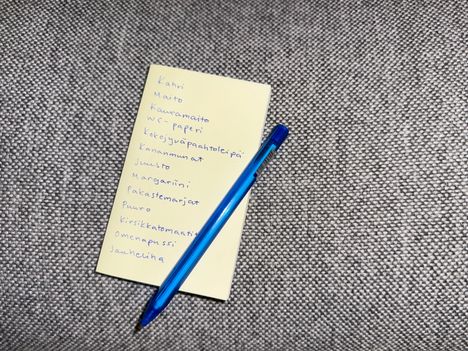 Kahvi
Maito
Kauramaito
WC-paperi
Kokojyväpaahtoleipä
Kananmunat
Juusto
Margariini
Pakastemarjat
Puuro
Kirsikkatomaatit
Omenapussi
Jauheliha